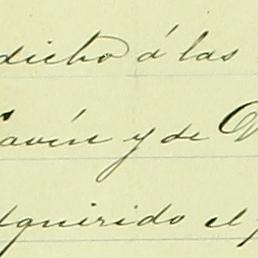 dicho á las
Gavín y de D
dquirido el